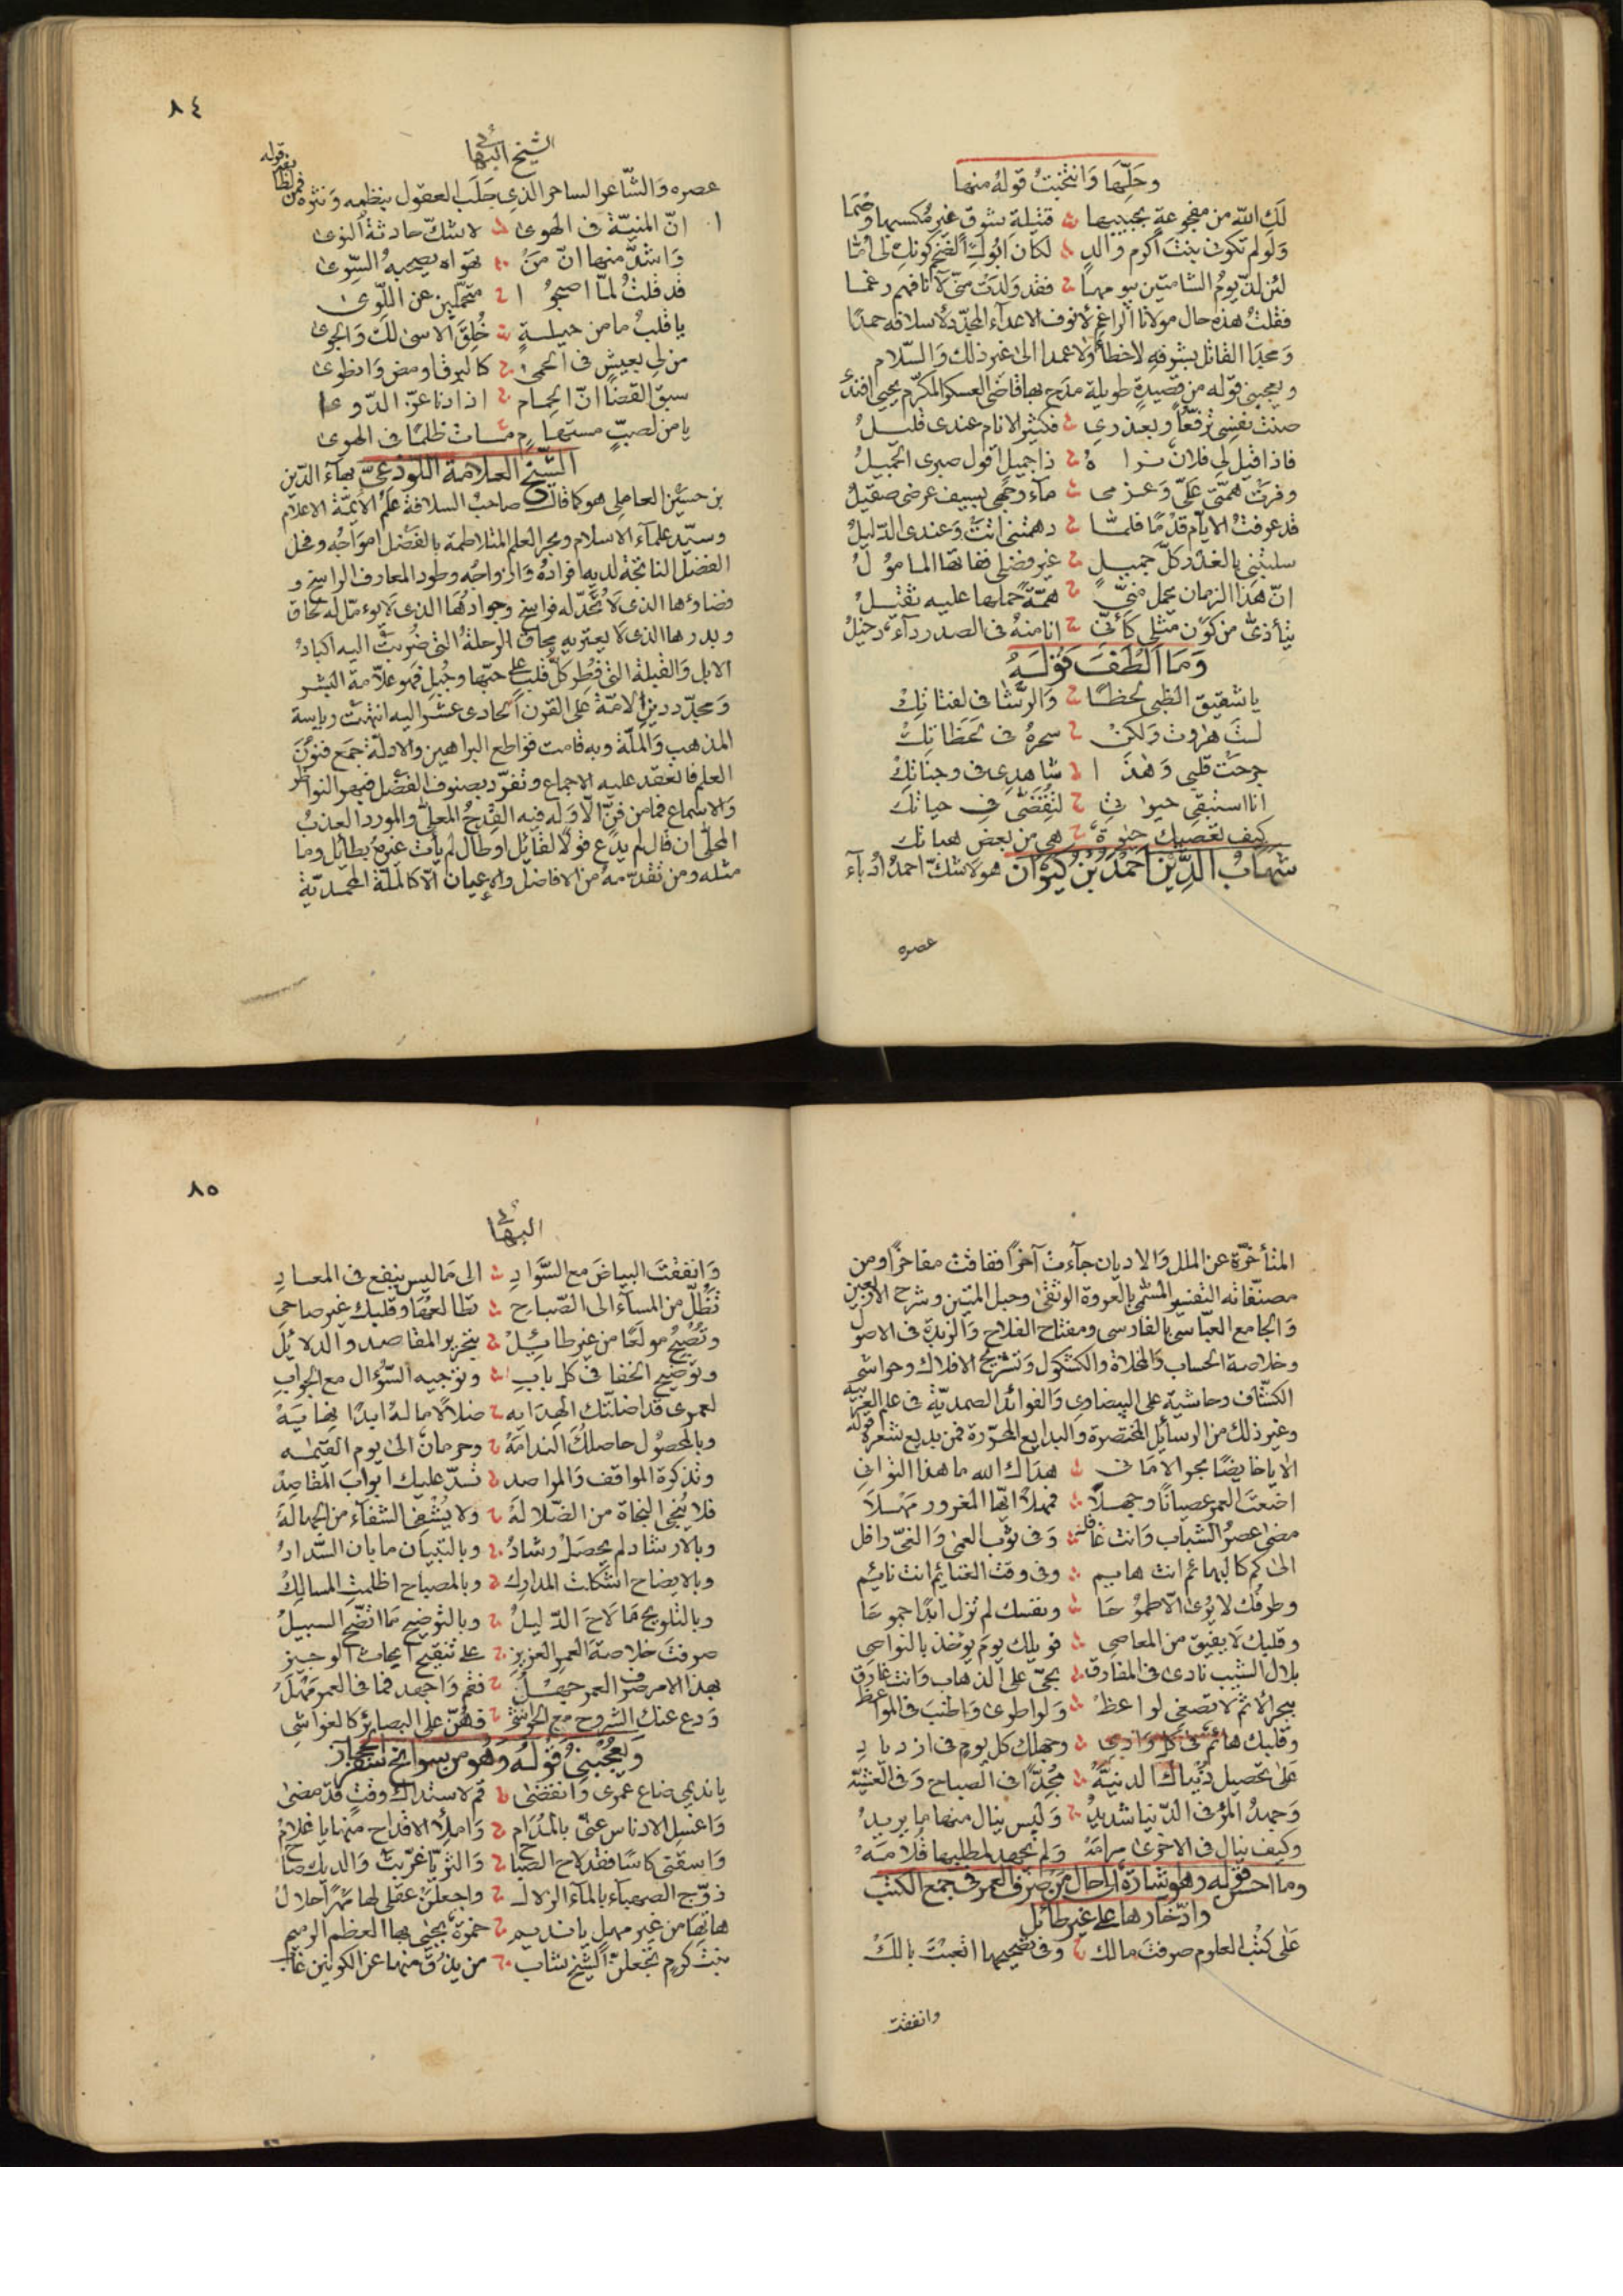 وحلّها وانتخبت قوله منها
لك الله من مفجوعة بحبيبها قتيلة شوق غير مكسبها وصما
ولو لم تكوني بنت أكرم والد لكان ابوك الضخم كونك لي أمّا
لئن لذّ يوم الشامتين بيومها فقد ولدت منّي لآنافهم رغما
فقلت هذه حال مولانا الراغم لأنوف الاعداء المجدّد لأسلافه حمدا
ومجدا القاتل بشوقه لا خطأ ولا عمدا الى غير ذلك والسّلام
ويعجبني قوله من قصيدة طويلة مدح بها قاضي العسكر المكرّم يحيى افندي
صنت نفسي ترفّعا وبعذري فكثير الانام عندي قليل
فاذا قيل لي فلان تراه ذا جميل اقول صبري الجميل
وفرت همّتي عليّ وعزمي ماء وجهي بسيف عرضي صقيل
قد عرفت الايام قدما فلمّا دهمتني اتت وعندي الدّليل
سلبتني بالغدر كلّ جميل غير فضلي ففاتها المامول
انّ هذا الزمان يحمل منّي همّة حملها عليه ثقيل
يتأذى من كون مثلي كأنّي انا منه في الصدر داء دخيل
وما الطف قوله
يا شقيق الظبي لحظا والرّشا في لفتاتك
لست هروت ولكن سحره في لحظاتك
جرحت قلبي وهذا شاهدي في وجناتك
انا استبقي حيواتي لتقضّى في حياتك
كيف تعصيك حيوة هي من بعض هباتك
شهاب الدّين احمد بن كيوان هو لا شك احمد ادباء
عصره
٨٤
الشيخ البهائي
عصره والشّاعر الساحر الذي جلب العقول بنظمه ونثره فمن لطايف قوله
انّ المنيّة في الهوى لا شكّ حادثة النوى
واشدّ منها انّ من تهواه يصحبه السّوى
قد قلت لمّا اصبحوا متحمّلين عن اللّوى
يا قلب ما من حيلة خلق الاسى لك والجوى
من لي بعيش في الحمى كالبرق اومض وانطوى
سبق القضا انّ الحمام اذا دنا عزّ الدّوا
يا من لصبّ مستهام مات ظلما في الهوى
الشّيخ العلامة اللّوذعيّ بهاء الدّين
بن حسين العاملي هو كما قال صاحب السلافة علم الأيمّة الاعلام
وسيّد علماء الاسلام وبحر العلم المتلاطمة بالفضل امواجه وفحل
الفضل الناتجة لديه افراده وازواجه وطود المعارف الراسخ و
فضاؤها الذي لا تحدّ له فراسخ وجوادها الذي لا يؤمّل له لحاق
وبدرها الذي لا يعتريه محاق الرحلة التي ضربت اليه اكباد
الابل والقبلة التي فطر كلّ قلب على حبّها وجبل فهو علّامة البشر
ومجدّد دين الامّة على القرن الحادي عشر اليه انتهت رياسة
المذهب والملّة وبه قامت قواطع البراهين والادلّة جمع فنون
العلم فانعقد عليه الاجماع وتفرّد بصنوف الفضل فبهر النواظر
والاسماع فما من فنّ الّا وله فيه القدح المعلّى والمورد العذب
المحلّى ان قال لم يدع قولا لقائل او طال لم يأت غيره بطائل وما
مثله ومن تقدّمه من الافاضل والاعيان الّا كالملّة المحمديّة
المتأخرّة عن الملل والاديان جاءت آخرا ففاقت مفاخرا ومن
مصنّفاته التفسير المسمّى بالعروة الوثقى وحبل المتين وشرح الاربعين
والجامع العبّاسي بالفارسي ومفتاح الفلاح والزبدة في الاصول
وخلاصة الحساب والمخلاة والكشكول وتشريح الافلاك وحواشي
الكشّاف وحاشية على البيضاوي والفوائد الصمديّة في علم العربيّة
وغير ذلك من الرسائل المختصرة والبدايع المحرّرة فمن بديع شعره قوله
الا يا خايضا بحر الاماني هداك الله ما هذا التواني
اضعت العمر عصيانا وجهلا فمهلا ايّها المغرور مهلا
مضى عصر الشباب وانت غافل وفي ثوب العمى والغيّ رافل
الى كم كالبهائم انت هايم وفي وقت الغنايم انت نايم
وطرفك لا يرى الّا طموحا ونفسك لم تزل ابدا جموحا
وقلبك لا يفيق من المعاصي فويلك يوم يؤخذ بالنواصي
بلال الشيب نادى في المفارق بحيّ على الذهاب وانت غارق
ببحر الاثم لا تصغي لواعظ ولو اطرى واطنب في المواعظ
وقلبك هائم في كل وادي وجهلك كل يوم في ازدياد
على تحصيل دنياك الدنيّة مجدّا في الصباح وفي العشيّة
وجهد المرء في الدّنيا شديد وليس ينال منها ما يريد
وكيف ينال في الاخرى مرامه ولم يجهد لمطلبها قلامه
وما احسن قوله وهو شارة الى حال من صرف العمر في جمع الكتب
وادّخارها على غير طائل
على كتب العلوم صرفت مالك وفي تصحيحها اتعبت بالك
وانفقت
٨٥
البهائي
وانفقت البياض مع السّواد الى ما ليس ينفع في المعاد
تظلّ من المساء الى الصّباح تطالعها وقلبك غير صاحي
وتصبح مولعا من غير طائيل بتحرير المقاصد والدلائل
وتوضيح الخفا في كل باب وتوجيه السّؤال مع الجواب
لعمري قد اضلّتك الهدايه ضلالا ما له ابدا نهايه
وبالمحصول حاصلك الندامة وحرمان الى يوم القيمه
وتذكرة المواقف والمراصد تسدّ عليك ابواب المقاصد
فلا ينجي النجاة من الضّلاله ولا يشفي الشفاء من الجهاله
وبالارشاد لم يحصل رشاد وبالتبيان ما بان السّداد
وبالايضاح اشكلت المدارك وبالمصباح اظلمت المسالك
وبالتلويح ما لاح الدّليل وبالتوضيح ما اتضّح السبيل
صرفت خلاصة العمر العزيز على تنقيح ابحاث الوجيز
بهذا الامر صرف العمر جهل فقم واجهد فما في العمر مهل
ودع عنك الشروح مع الحواشي فهنّ على البصائر كالغواشي
ويعجبني قوله وهو من سوانح سفر الحجاز
يا نديمي ضاع عمري وانقضى قم لاستدراك وقت قد مضى
واغسل الادناس عنّي بالمدام واملأ الاقداح منها يا غلام
واسقني كاسا فقد لاح الصباح والثريّا غرّبت والديك صاح
زوّج الصهباء بالماء الزلال واجعلن عقلي لها مهرا حلال
هاتها من غير مهل يا نديم خمرة يحيى بها العظم الرميم
بنت كرم تجعلن الشّيخ شاب من يذق منها عن الكونين غاب